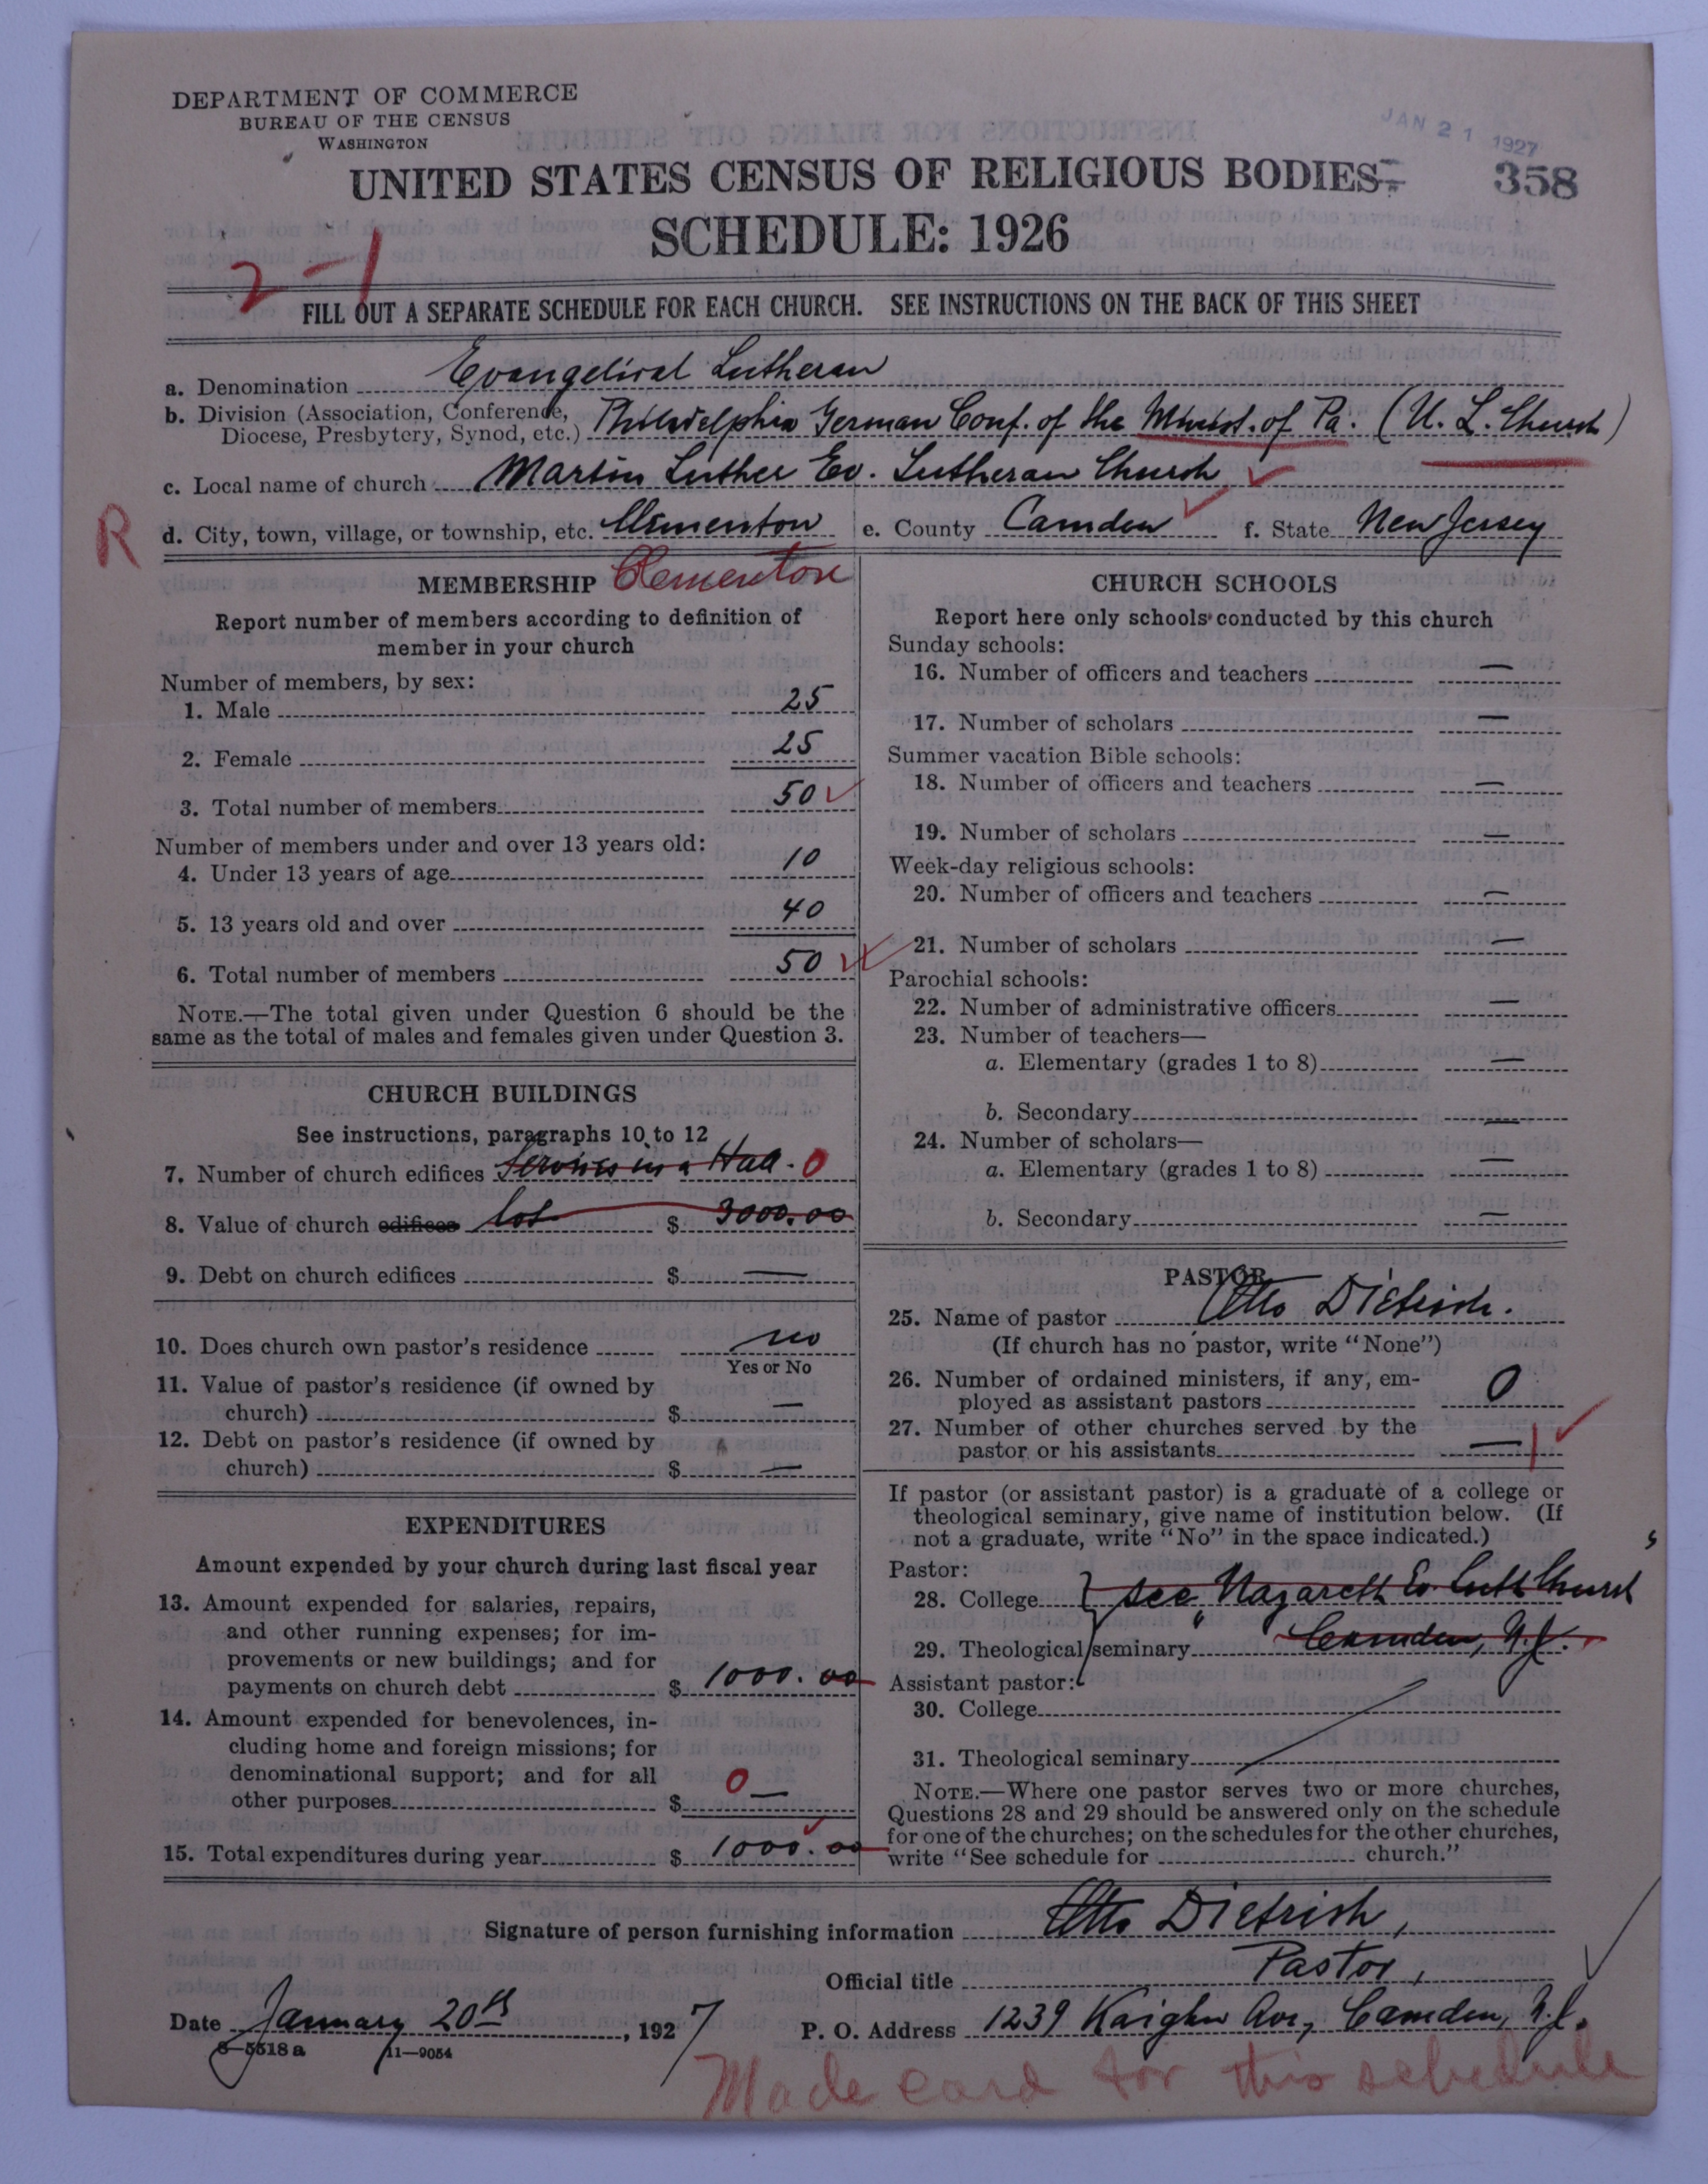 DEPARTMENT OF COMMERCE
BUREAU OF THE CENSUS
WASHINGTON
JAN 21 1927
358
UNITED STATES CENSUS OF RELIGIOUS BODIES
SCHEDULE: 1926
2-1
FILL OUT A SEPARATE SCHEDULE FOR EACH CHURCH. SEE INSTRUCTIONS ON THE BACK OF THIS SHEET
a. Denomination Evangelical Lutheran
b. Division (Association, Conference,
Diocese, Presbytery, Synod, etc.) Philadelphia German Conf. of the Minist. of Pa. (U. L. Church)
c. Local name of church Martin Luther Ev. Lutheran Church
R
d. City, town, village, or township, etc. Clementon e. County Camden f. State New Jersey
MEMBERSHIP Clementon
Report number of members according to definition of
member in your church
Number of members, by sex:
1. Male 25
2. Female 25
3. Total number of members 50
Number of members under and over 13 years old:
4. Under 13 years of age 10
5. 13 years old and over 40
6. Total number of members 50
NOTE.—The total given under Question 6 should be the
same as the total of males and females given under Question 3.
CHURCH BUILDINGS
See instructions, paragraphs 10 to 12
7. Number of church edifices Services in a Hall. 0
8. Value of church edifices lot $ 3000.00
9. Debt on church edifices $ —
10. Does church own pastor's residence no
Yes or No
11. Value of pastor's residence (if owned by
church) $ —
12. Debt on pastor's residence (if owned by
church) $ —
EXPENDITURES
Amount expended by your church during last fiscal year
13. Amount expended for salaries, repairs,
and other running expenses; for im-
provements or new buildings; and for
payments on church debt $ 1000.00
14. Amount expended for benevolences, in-
cluding home and foreign missions; for
denominational support; and for all
other purposes $ 0 —
15. Total expenditures during year $ 1000.00
CHURCH SCHOOLS
Report here only schools conducted by this church
Sunday schools:
16. Number of officers and teachers —
17. Number of scholars —
Summer vacation Bible schools:
18. Number of officers and teachers —
19. Number of scholars —
Week-day religious schools:
20. Number of officers and teachers —
21. Number of scholars —
Parochial schools:
22. Number of administrative officers —
23. Number of teachers—
a. Elementary (grades 1 to 8) —
b. Secondary —
24. Number of scholars—
a. Elementary (grades 1 to 8) —
b. Secondary —
PASTOR
25. Name of pastor Otto Dietrich.
(If church has no pastor, write "None")
26. Number of ordained ministers, if any, em-
ployed as assistant pastors 0
27. Number of other churches served by the
pastor or his assistants — 1
If pastor (or assistant pastor) is a graduate of a college or
theological seminary, give name of institution below. (If
not a graduate, write "No" in the space indicated.)
Pastor:
28. College see Nazareth Ev. Luth Church
29. Theological seminary " Camden, N.J.
Assistant pastor:
30. College
31. Theological seminary
NOTE.—Where one pastor serves two or more churches,
Questions 28 and 29 should be answered only on the schedule
for one of the churches; on the schedules for the other churches,
write "See schedule for church."
Signature of person furnishing information Otto Dietrich,
Official title Pastor,
Date January 20th, 1927 P. O. Address 1239 Kaighn Ave, Camden, N.J.
8—5518a 11—9054
Made card for this schedule